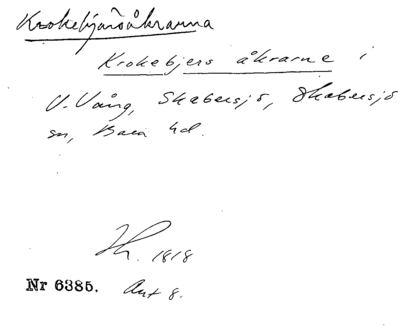 Krokebjärsåkrarna
Krokebjers åkrarne i
V. Vång, Skabersjö, Skabersjö
sn, Bara hd.
1818
Nr 6385. Akt 8.